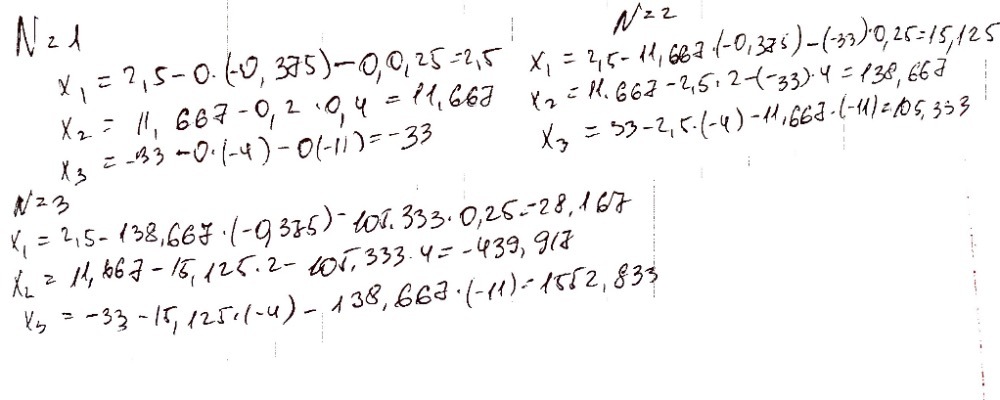 N=1
x₁ = 2,5-0·(-0,375)-0,0,25=2,5
x₂ = 11,667-0,2·0,4=11,667
x₃ = -33-0·(-4)-0(-11)=-33
N=2
x₁ = 2,5-11,667·(-0,375)-(-33)·0,25=15,125
x₂ = 11.667-2,5·2-(-33)·4=138,667
x₃ = 33-2,5·(-4)-11,667·(-11)=105,333
N=3
x₁ = 2,5-138,667·(-0,375)-105.333·0,25=28,167
x₂ = 11,667-15,125·2-105,333·4=-439,917
x₃ = -33-15,125·(-4)-138,667·(-11)=1552,833